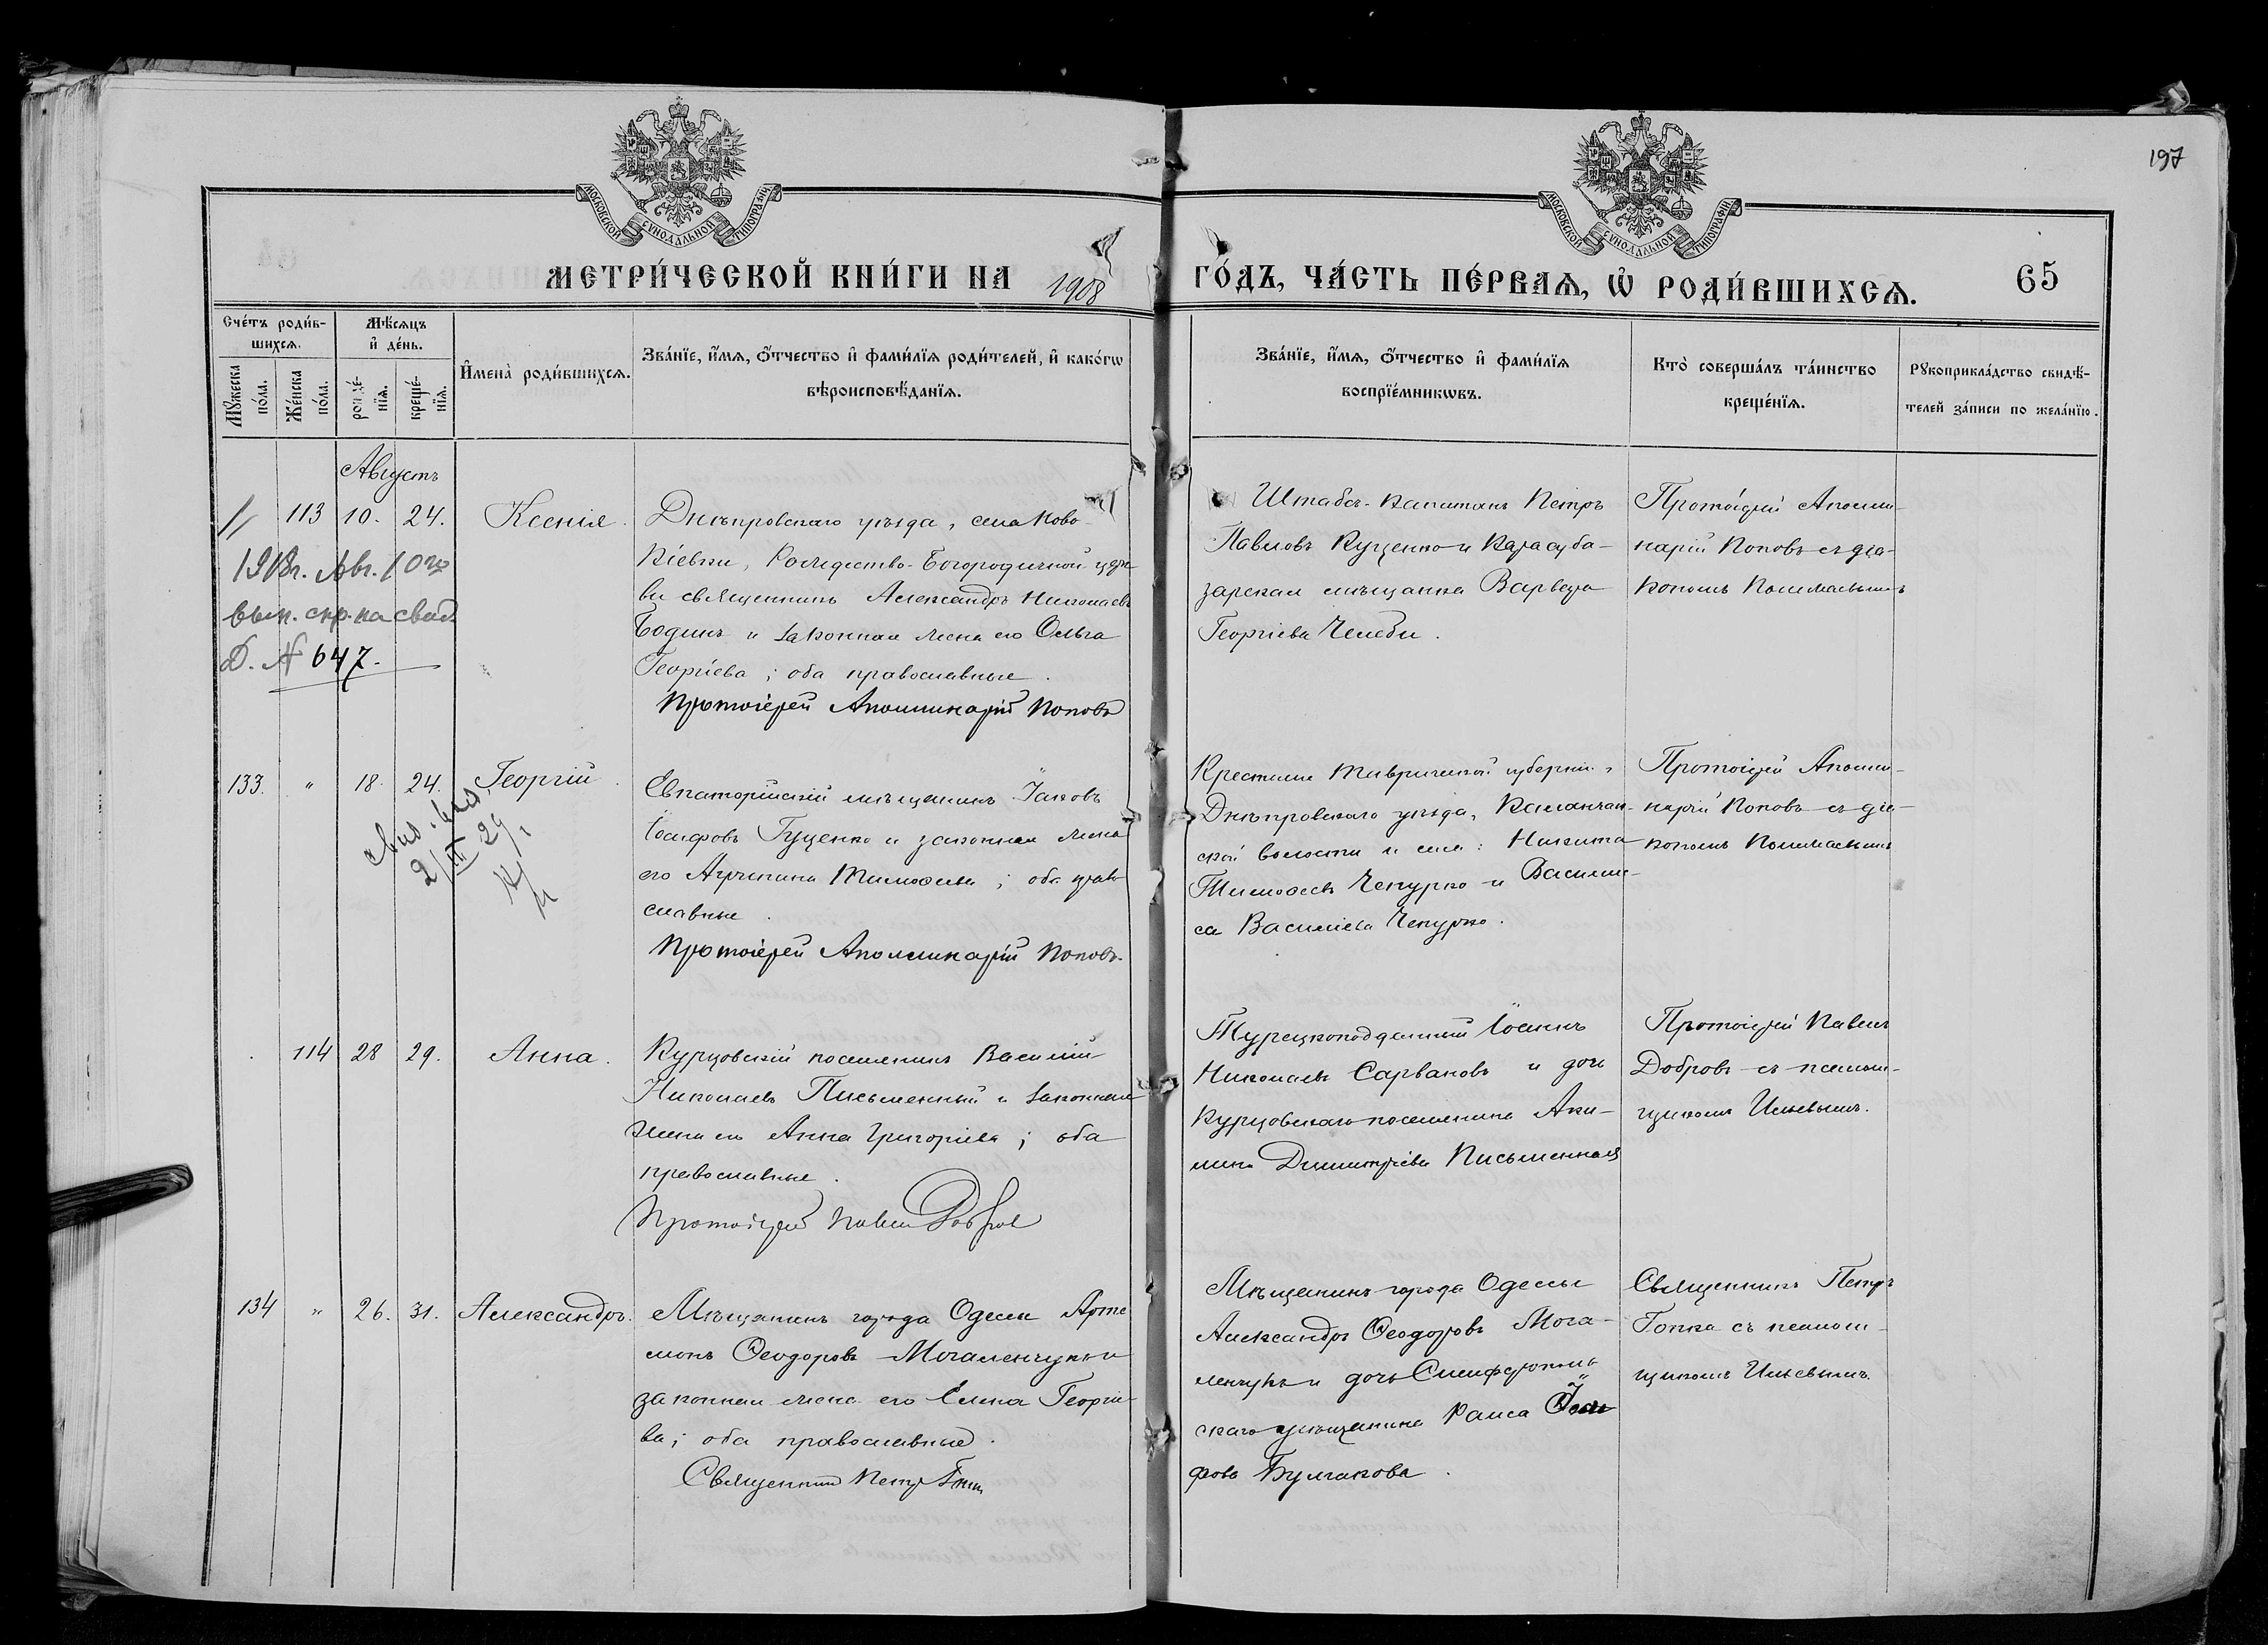 197
МОСКОВСКОЙ СѴНОДАЛЬНОЙ ТИПОГРАФІИ
МОСКОВСКОЙ СѴНОДАЛЬНОЙ ТИПОГРАФІИ
МЕТРИ́ЧЕСКОЙ КНИ́ГИ НА 1908 ГО́ДЪ, ЧА́СТЬ ПЕ́РВАѦ, Ѡ҆ РОДИ́ВШИХСѦ. 65
Сче́тъ роди́в-
шихсѧ.
Мѣ́сѧцъ
и҆ де́нь.
Мꙋ́жеска
по́ла.
Же́нска
по́ла.
рожде́-
нїѧ.
креще́-
нїѧ.
И҆мена̀ роди́вшихсѧ.
Зва́нїе, и҆́мѧ, ѻ҆́тчество и҆ фами́лїѧ роди́телей, и҆ како́гѡ
вѣроисповѣ́данїѧ.
Зва́нїе, и҆́мѧ, ѻ҆́тчество и҆ фами́лїѧ
воспрїе́мникѡвъ.
Кто̀ соверша́лъ та́инство
креще́нїѧ.
Рꙋкоприкла́дство свидѣ́-
телей за́писи по жела́нїю.
Августъ
113 10. 24. Ксенія.
1918г. Авг. 10го
вып. спр. на свад.
D. № 647.
Днѣпровскаго уѣзда, села Ново-
Кіевки, Рождество-Богородичной церк-
ви священникъ Александръ Николаевъ
Бодинъ и законная жена его Ольга
Георгіева; оба православные.
Протоіерей Аполлинарій Поповъ
Штабсъ-Капитанъ Петръ
Павловъ Куценко и Карасуба-
зарская мѣщанка Варвара
Георгіева Челеби.
Протоіерей Аполли-
нарій Поповъ съ діа-
кономъ
133. " 18. 24. Георгій.
2/III 29 г.
Евпаторійскій мѣщанинъ Іаковъ
Іосифовъ Гуценко и законная жена
его Агрипина Тимоѳеева; оба право-
славные.
Протоіерей Аполлинарій Поповъ.
Крестьяне Таврической губерніи,
Днѣпровскаго уѣзда, Каланчак-
ской волости и села: Никита
Тимоѳеевъ Чепурко и Василис-
са Василіева Чепурко.
Протоіерей Аполли-
нарій Поповъ съ діа-
кономъ
114 28 29. Анна.
Курцовскій поселянинъ Василій
Николаевъ Письменный и законная
жена его Анна Григоріева; оба
православные.
Протоіерей Павелъ Добровъ
Турецкоподданный Іоаннъ
Николаевъ Сарвановъ и дочь
Курцовскаго поселянина Аки-
лина Димитріева Письменная
Протоіерей Павелъ
Добровъ съ псалом-
щикомъ Ильевымъ.
134 " 26. 31. Александръ.
Мѣщанинъ города Одессы Арте-
монъ Ѳеодоровъ Могаленчукъ и
законная жена его Елена Георгіе-
ва; оба православные.
Священникъ Петръ Гопка
Мѣщанинъ города Одессы
Александръ Ѳеодоровъ Мога-
ленчукъ и дочь Симферополь-
скаго мѣщанина Раиса
Булгакова.
Священникъ Петръ
Гопка съ псалом-
щикомъ Ильевымъ.